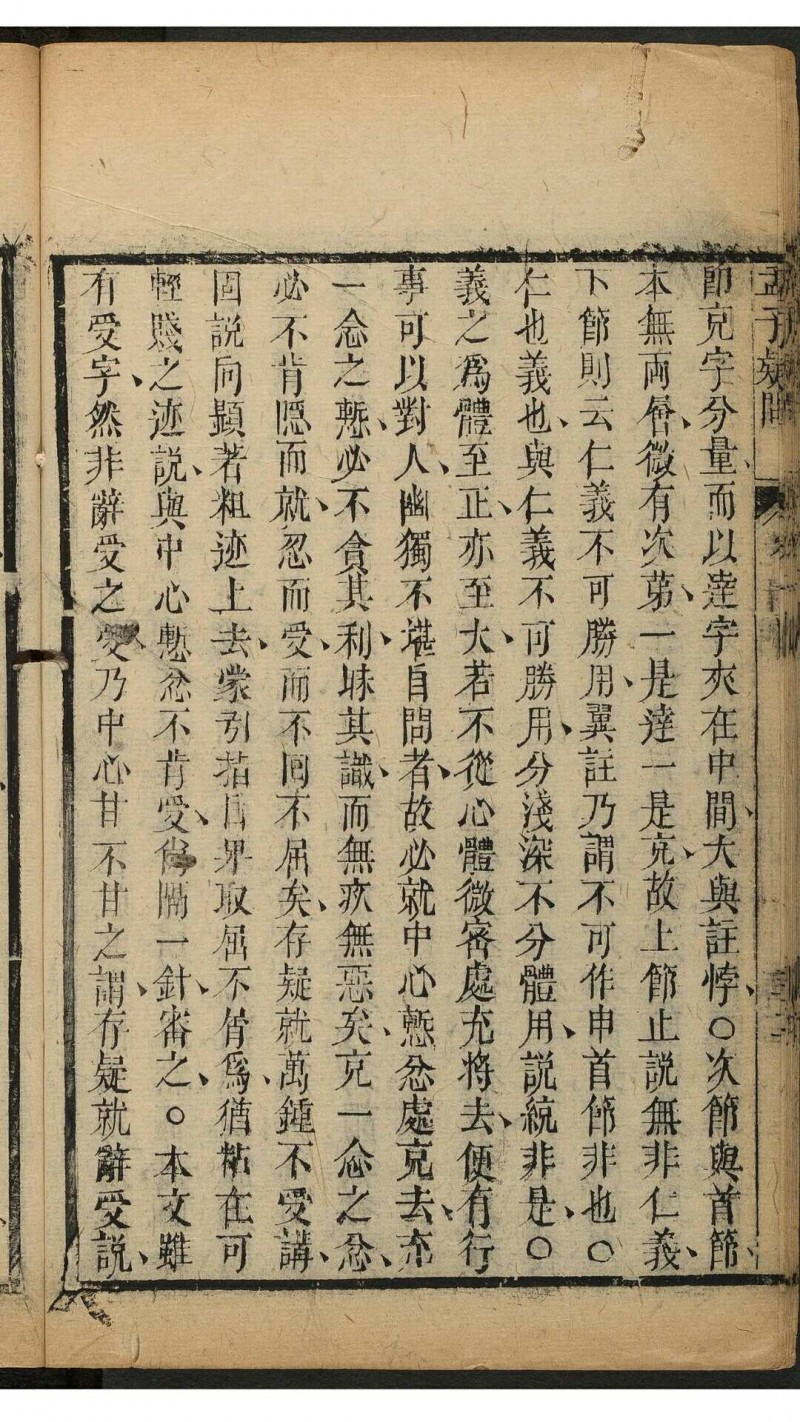 孟子疑問
節充字分量、而以達字夾在中間、大與註悖、○次節與首節、
本無兩層、微有次第、一是達一是充、故上節止説無非仁義、
下節則云仁義不可勝用、翼註乃謂不可作申首節非也○
仁也義也、與仁義不可勝用、分淺深不分體用、説統非是、○
義之爲體至正、亦至大、若不從心體微密處充將去、便有行
事可以對人、幽獨不堪自問者、故必就中心慙忿處充去、充
一念之慙、必不貪其利、昧其識、而無疚無惡矣、充一念之忿、
必不肯隠而就、忍而受、而不回不屈矣、存疑就萬鍾不受講、
固説向顯著粗迹上去、蒙引指目界取屈不屑爲、猶粘在可
輕賤之迹説、與中心慙忿不肯受、尚隔一針、審之、○本文雖
有受字、然非辭受之受乃中心甘不甘之謂、存疑就辭受説、